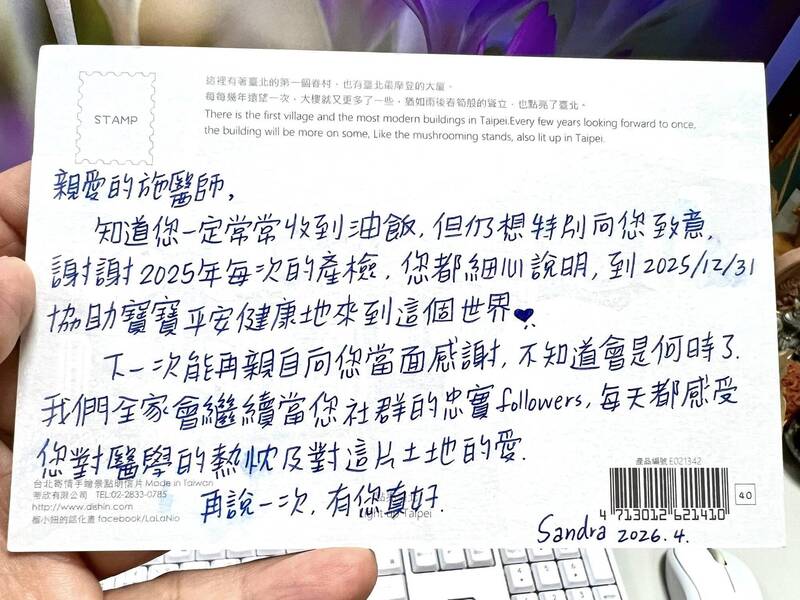 STAMP
這裡有著臺北的第一個眷村，也有臺北最摩登的大廈。
每每幾年遠望一次，大樓就又更多了一些，猶如雨後春筍般的聳立，也點亮了臺北。
There is the first village and the most modern buildings in Taipei.Every few years looking forward to once,
the building will be more on some, Like the mushrooming stands, also lit up in Taipei.
親愛的施醫師，
知道您一定常常收到油飯，但仍想特別向您致意，
謝謝2025年每次的產檢，您都細心說明，到2025/12/31
協助寶寶平安健康地來到這個世界♥
下一次能再親自向您當面感謝，不知道會是何時了．
我們全家會繼續當您社群的忠實followers，每天都感受
您對醫學的熱忱及對這片土地的愛．
再說一次，有您真好．
Sandra 2026.4.
台北寄情手繪景點明信片 Made in Taiwan
考欣有限公司 TEL:02-2833-0785
http://www.dishin.com
facebook/LaLaNio
Light up Taipei
產品編號 E021342
4 713012 621410
40